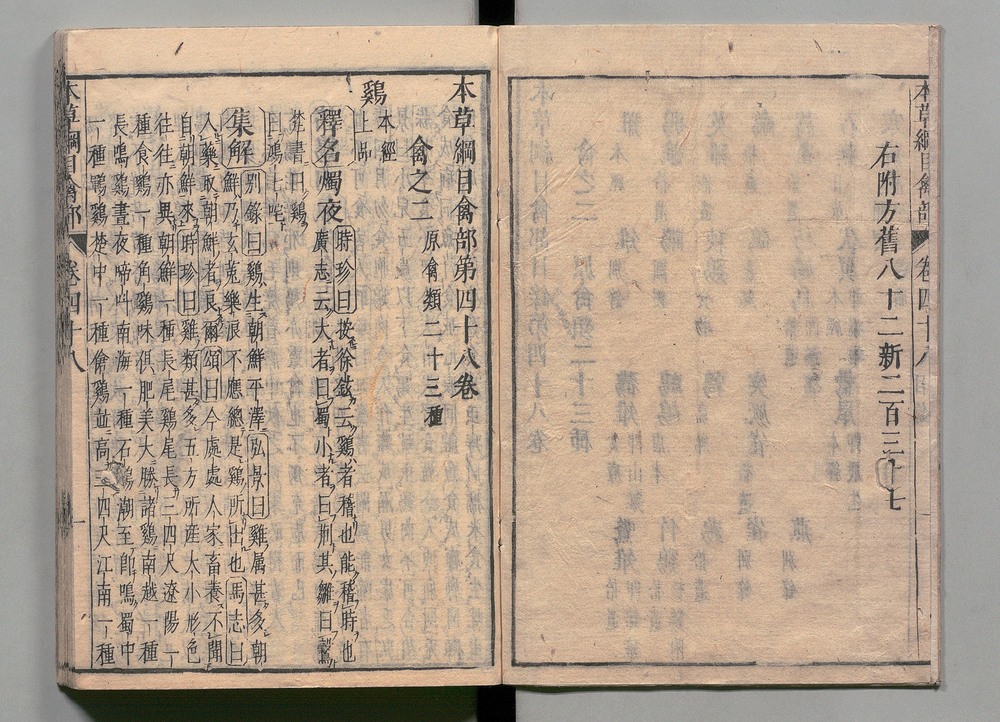 本草綱目禽部 卷四十八
右附方舊八十二新二百三十七
本草綱目禽部第四十八卷
禽之二 原禽類二十三種
鷄 本經上品
釋名燭夜 時珍曰按徐鉉云鷄者稽也能稽時也
廣志云大者曰蜀小者曰荆其雛曰鷇
梵書曰鷄
曰鳩七咤
集解 別錄曰鷄生朝鮮平澤弘景曰雞属甚多朝
鮮乃玄菟樂浪不應總是鷄所出也馬志曰
入藥取朝鮮者良爾頌曰今處處人家畜養不聞
自朝鮮來時珍曰雞類甚多五方所産大小形色
往往亦異朝鮮一種長尾鷄尾長三四尺遼陽一
種食鷄一種角鷄味俱肥美大勝諸鷄南越一種
長鳴鷄晝夜啼呌南海一種石鷄潮至即鳴蜀中
一種鶤鷄楚中一種傖鷄並高三四尺江南一種
本草綱目禽部 卷四十八 一